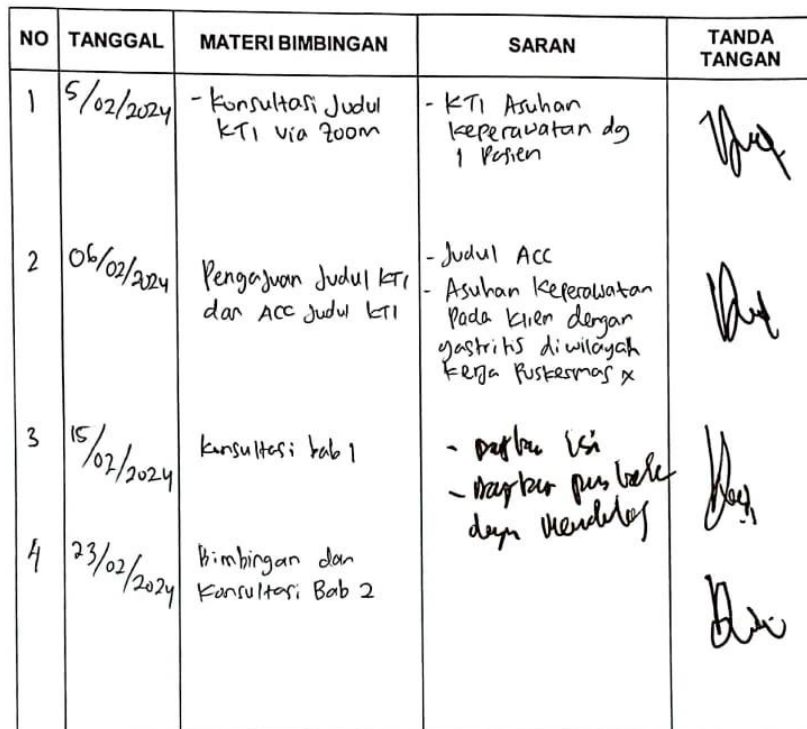 NO TANGGAL MATERI BIMBINGAN SARAN TANDA TANGAN
1 5/02/2024 - Konsultasi Judul KTI via Zoom - KTI Asuhan Keperawatan dg 1 Pasien
2 06/02/2024 Pengajuan Judul KTI dan ACC Judul KTI - Judul ACC
- Asuhan Keperawatan
Pada Klien dengan
gastritis diwilayah
Kerja Puskesmas x
3 15/02/2024 Konsultasi bab 1 - Daftar isi
- Daftar pustaka
4 23/02/2024 Bimbingan dan
Konsultasi Bab 2